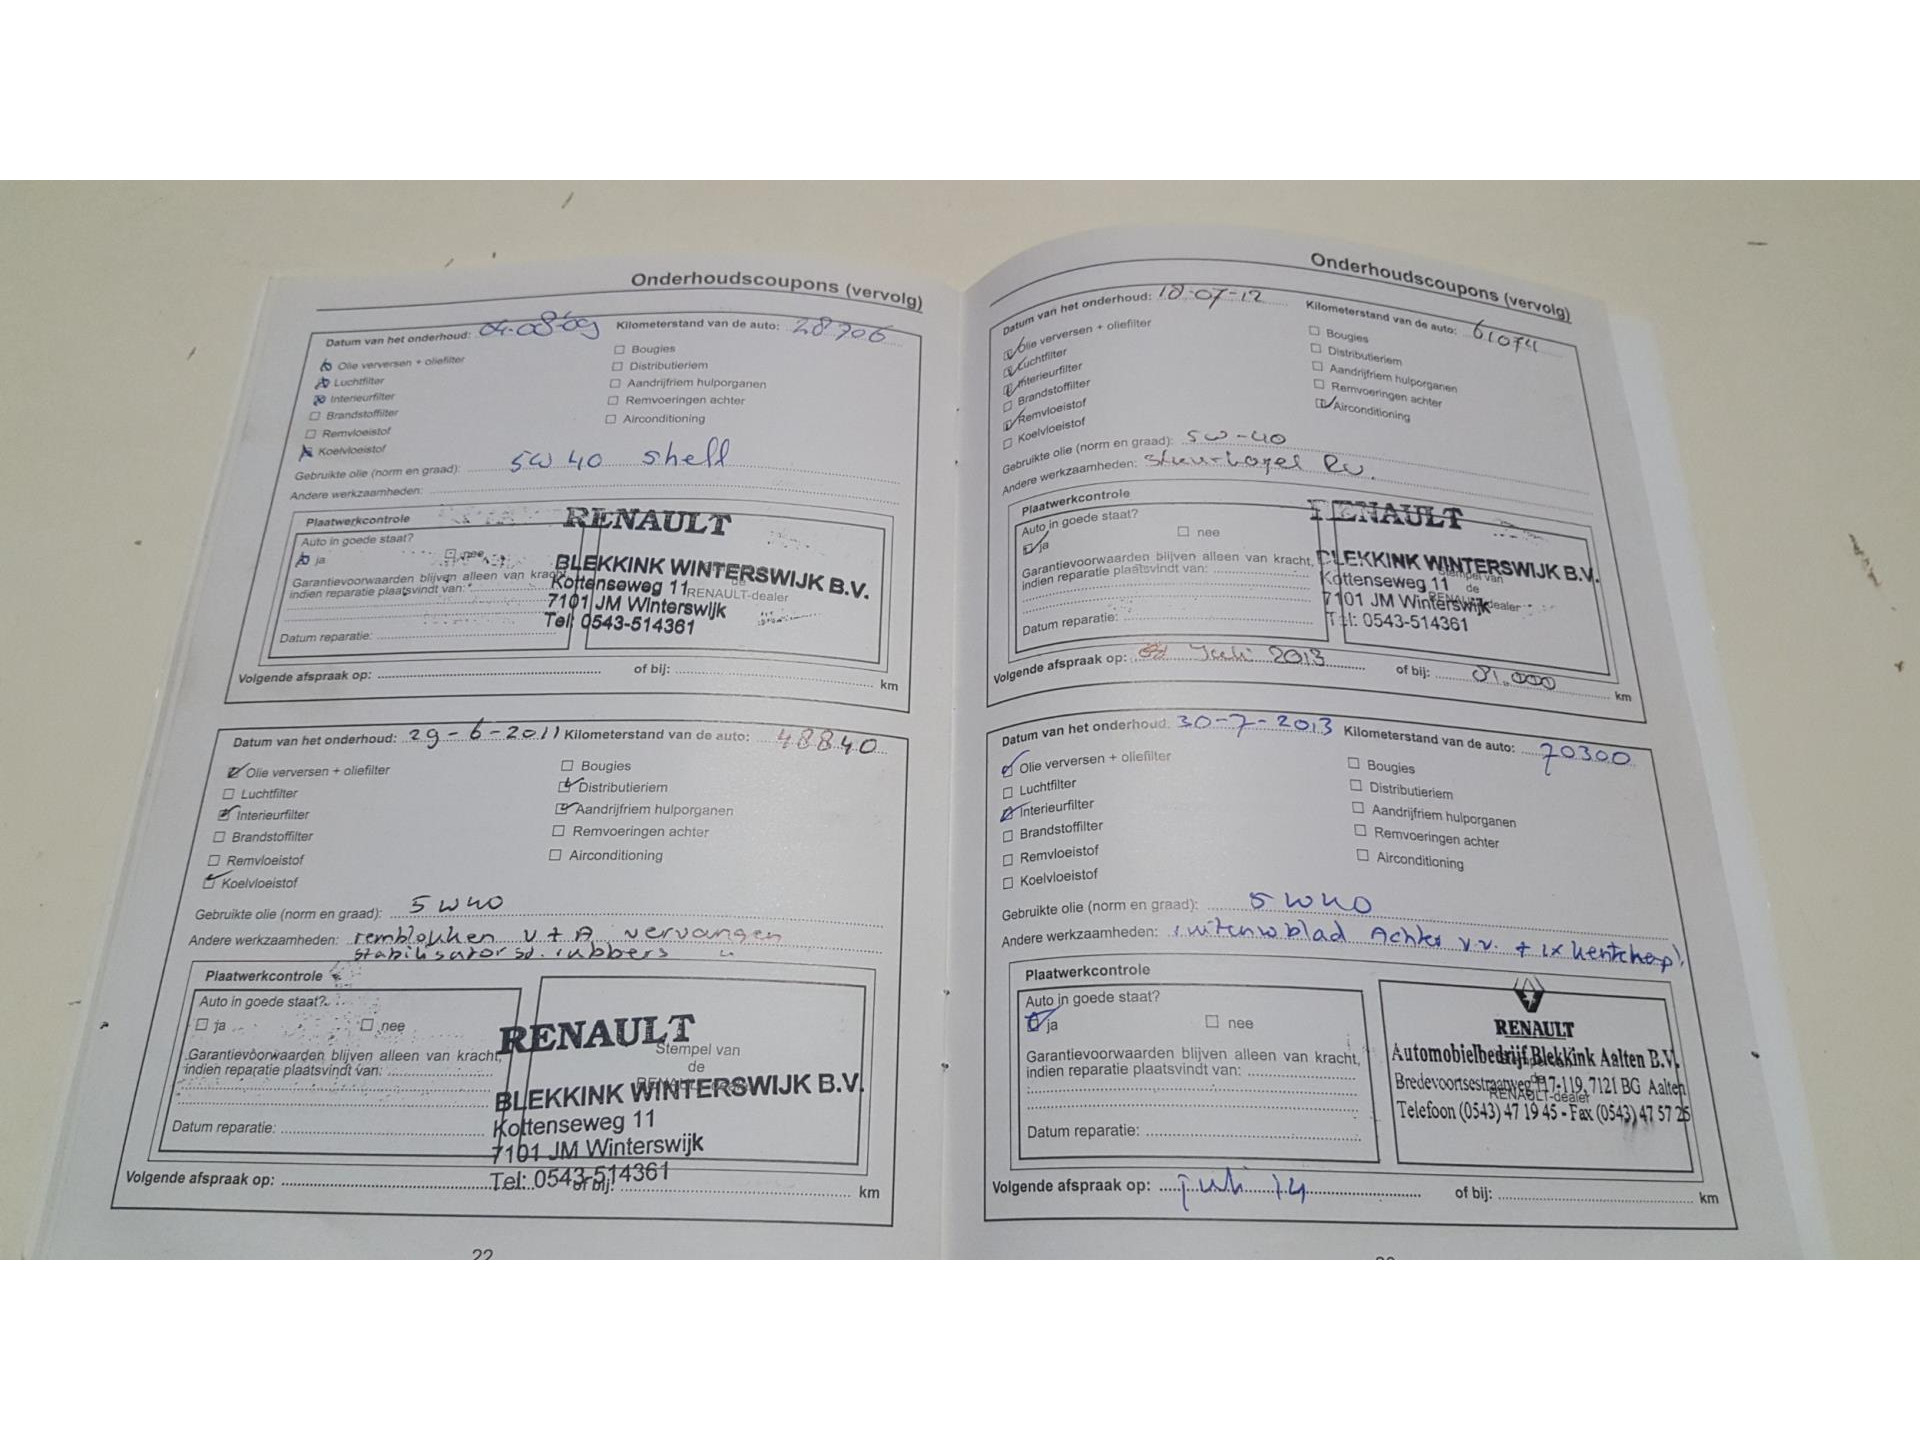 Onderhoudscoupons (vervolg)
Datum van het onderhoud: 04-08-'09 Kilometerstand van de auto: 28706
Olie verversen + oliefilter
Luchtfilter
Interieurfilter
Brandstoffilter
Remvloeistof
Koelvloeistof
Bougies
Distributieriem
Aandrijfriem hulporganen
Remvoeringen achter
Airconditioning
Gebruikte olie (norm en graad): 5W40 shell
Andere werkzaamheden:
Plaatwerkcontrole
Auto in goede staat?
ja nee
Garantievoorwaarden blijven alleen van kracht,
indien reparatie plaatsvindt van:
Datum reparatie:
RENAULT
BLEKKINK WINTERSWIJK B.V.
de
Kottenseweg 11
RENAULT-dealer
7101 JM Winterswijk
Tel: 0543-514361
Volgende afspraak op: of bij: km
Datum van het onderhoud: 29-6-2011 Kilometerstand van de auto: 48840
Olie verversen + oliefilter
Luchtfilter
Interieurfilter
Brandstoffilter
Remvloeistof
Koelvloeistof
Bougies
Distributieriem
Aandrijfriem hulporganen
Remvoeringen achter
Airconditioning
Gebruikte olie (norm en graad): 5W40
Andere werkzaamheden: remblokken V+A vervangen
stabilisator rubbers
Plaatwerkcontrole
Auto in goede staat?
ja nee
Garantievoorwaarden blijven alleen van kracht,
indien reparatie plaatsvindt van:
Datum reparatie:
RENAULT
Stempel van
de
RENAULT-dealer
BLEKKINK WINTERSWIJK B.V.
Kottenseweg 11
7101 JM Winterswijk
Tel: 0543-514361
Volgende afspraak op: of bij: km
22
Onderhoudscoupons (vervolg)
Datum van het onderhoud: 18-07-12 Kilometerstand van de auto: 61074
Olie verversen + oliefilter
Luchtfilter
Interieurfilter
Brandstoffilter
Remvloeistof
Koelvloeistof
Bougies
Distributieriem
Aandrijfriem hulporganen
Remvoeringen achter
Airconditioning
Gebruikte olie (norm en graad): 5W-40
Andere werkzaamheden:
Plaatwerkcontrole
Auto in goede staat?
ja nee
Garantievoorwaarden blijven alleen van kracht,
indien reparatie plaatsvindt van:
Datum reparatie:
RENAULT
BLEKKINK WINTERSWIJK B.V.
Stempel van
de
Kottenseweg 11
RENAULT-dealer
7101 JM Winterswijk
Tel: 0543-514361
Volgende afspraak op: Juli 2013 of bij: 81.000 km
Datum van het onderhoud: 30-7-2013 Kilometerstand van de auto: 70300
Olie verversen + oliefilter
Luchtfilter
Interieurfilter
Brandstoffilter
Remvloeistof
Koelvloeistof
Bougies
Distributieriem
Aandrijfriem hulporganen
Remvoeringen achter
Airconditioning
Gebruikte olie (norm en graad): 5W40
Andere werkzaamheden: ruitenwblad Achter v.v. + 1x
Plaatwerkcontrole
Auto in goede staat?
ja nee
Garantievoorwaarden blijven alleen van kracht,
indien reparatie plaatsvindt van:
Datum reparatie:
RENAULT
Automobielbedrijf Blekkink Aalten B.V.
de
Bredevoortsestraatweg 117-119, 7121 BG Aalten
RENAULT-dealer
Telefoon (0543) 47 19 45 - Fax (0543) 47 57 26
Volgende afspraak op: juli 14 of bij: km